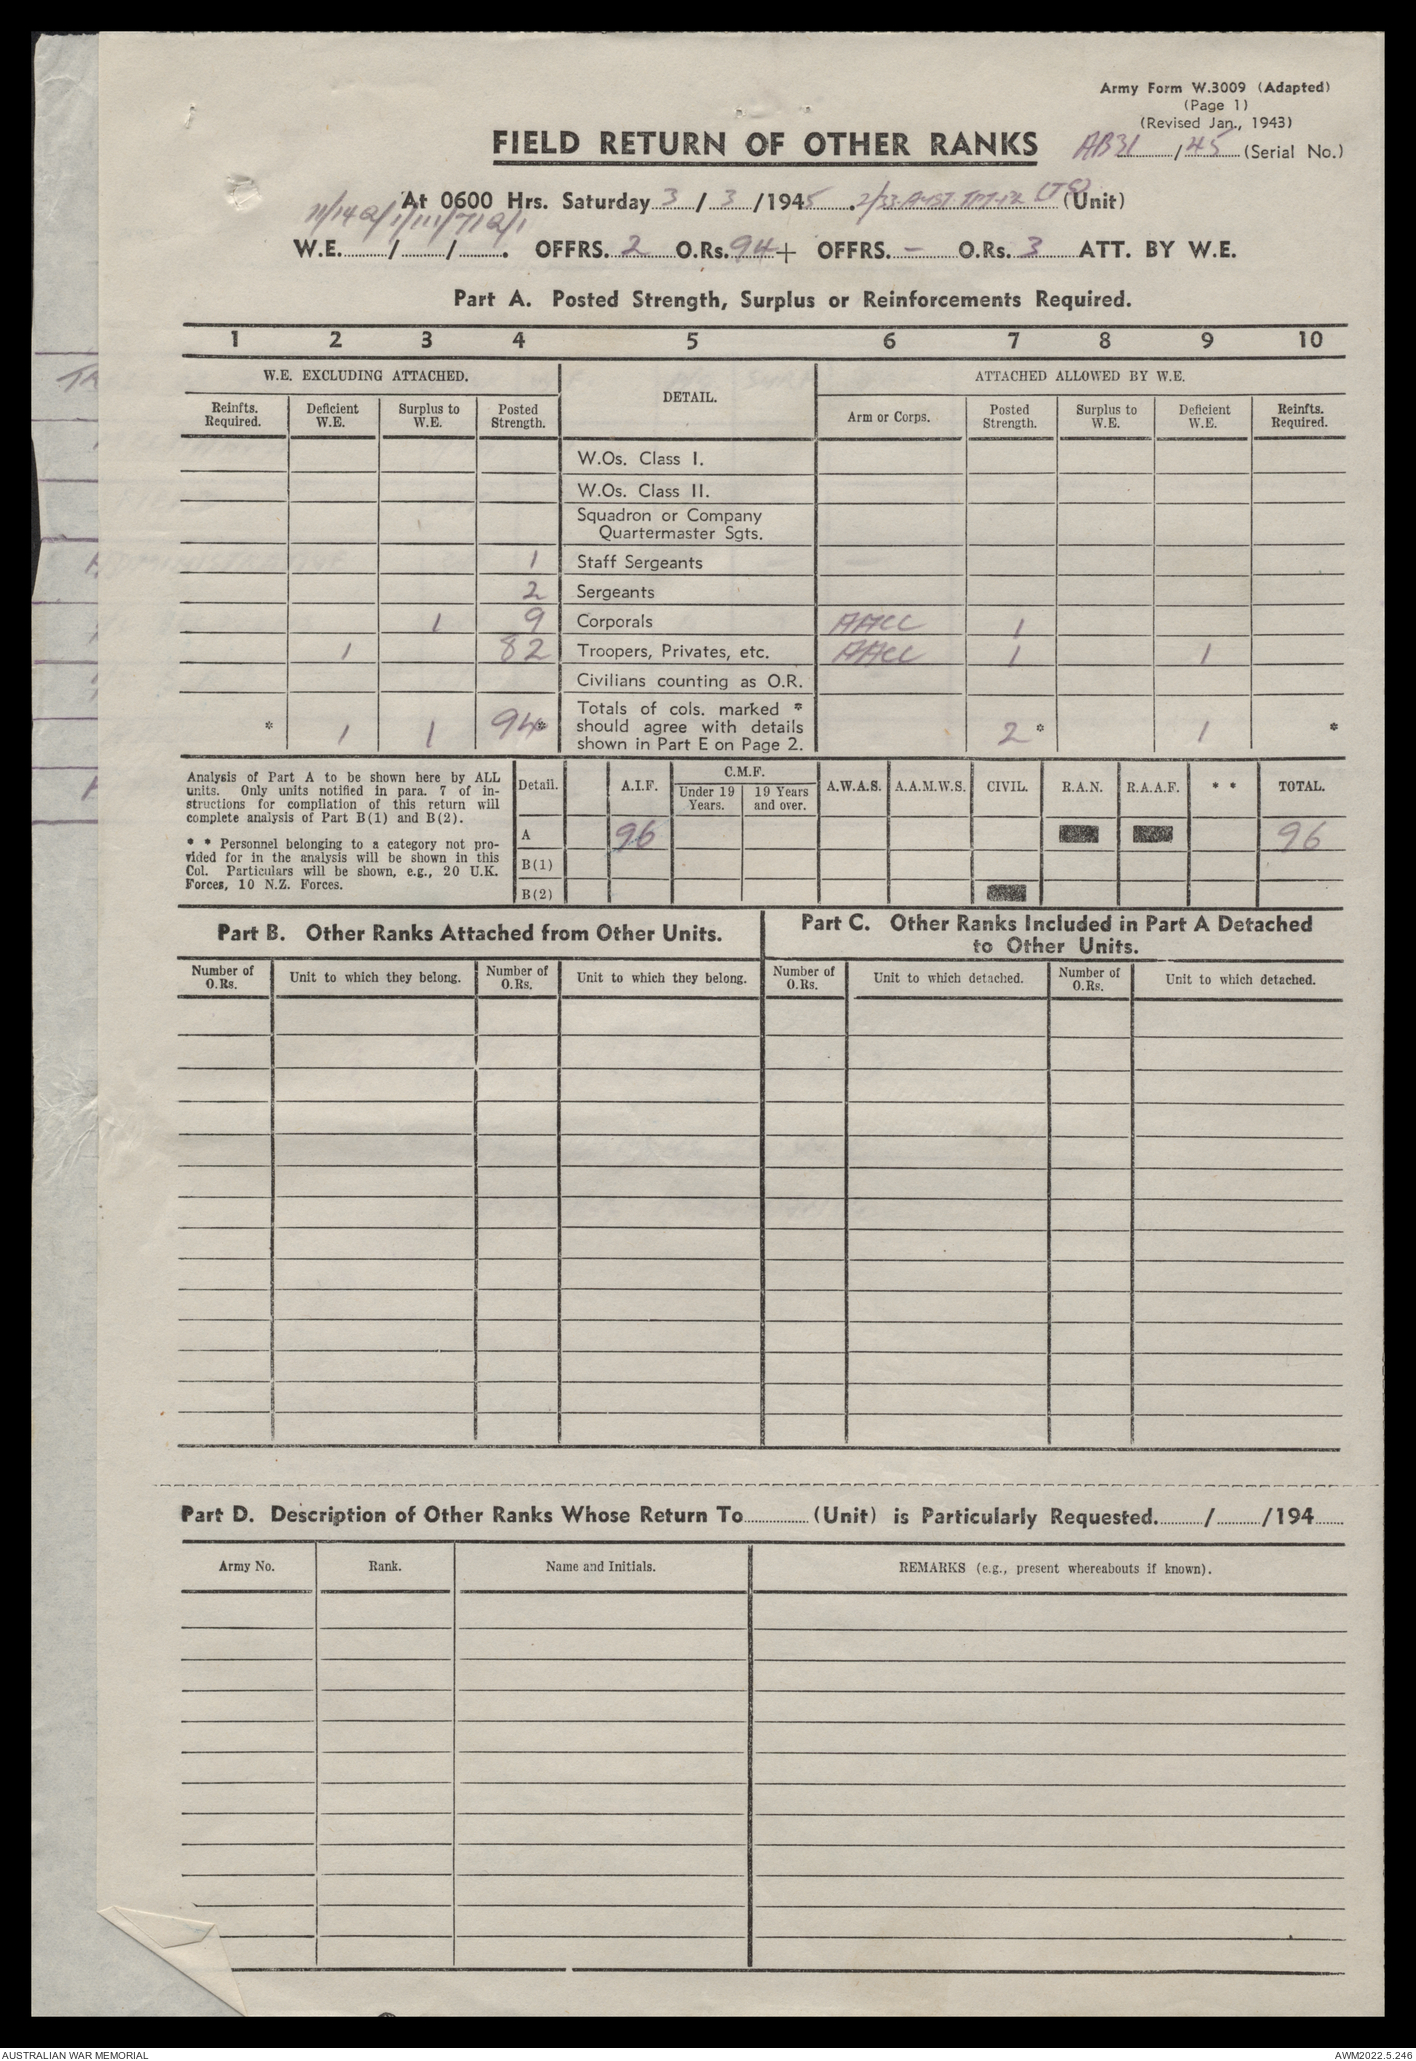 Army Form W.3009 (Adapted)
(Page 1)
(Revised Jan., 1943)
FIELD RETURN OF OTHER RANKS AB31 / 45 (Serial No.)
At 0600 Hrs. Saturday 3 / 3 /1945 . (Unit)
W.E. / / . OFFRS. 2 O.Rs. 94 + OFFRS. – O.Rs. 3 ATT. BY W.E.
Part A. Posted Strength, Surplus or Reinforcements Required.
1 2 3 4 5 6 7 8 9 10
W.E. EXCLUDING ATTACHED. DETAIL. ATTACHED ALLOWED BY W.E.
Reinfts. Required. Deficient W.E. Surplus to W.E. Posted Strength. Arm or Corps. Posted Strength. Surplus to W.E. Deficient W.E. Reinfts. Required.
W.Os. Class I.
W.Os. Class II.
Squadron or Company
Quartermaster Sgts.
1 Staff Sergeants
2 Sergeants
1 9 Corporals AACC 1
1 82 Troopers, Privates, etc. AACC 1 1
Civilians counting as O.R.
* 1 1 94* Totals of cols. marked * should agree with details shown in Part E on Page 2. 2* 1 *
Analysis of Part A to be shown here by ALL
units. Only units notified in para. 7 of in-
structions for compilation of this return will
complete analysis of Part B(1) and B(2).
* * Personnel belonging to a category not pro-
vided for in the analysis will be shown in this
Col. Particulars will be shown, e.g., 20 U.K.
Forces, 10 N.Z. Forces.
Detail. A.I.F. C.M.F. Under 19 Years. 19 Years and over. A.W.A.S. A.A.M.W.S. CIVIL. R.A.N. R.A.A.F. * * TOTAL.
A 96 96
B(1)
B(2)
Part B. Other Ranks Attached from Other Units.
Part C. Other Ranks Included in Part A Detached
to Other Units.
Number of O.Rs. Unit to which they belong. Number of O.Rs. Unit to which they belong. Number of O.Rs. Unit to which detached. Number of O.Rs. Unit to which detached.
Part D. Description of Other Ranks Whose Return To (Unit) is Particularly Requested. / /194
Army No. Rank. Name and Initials. REMARKS (e.g., present whereabouts if known).
AUSTRALIAN WAR MEMORIAL AWM2022.5.246